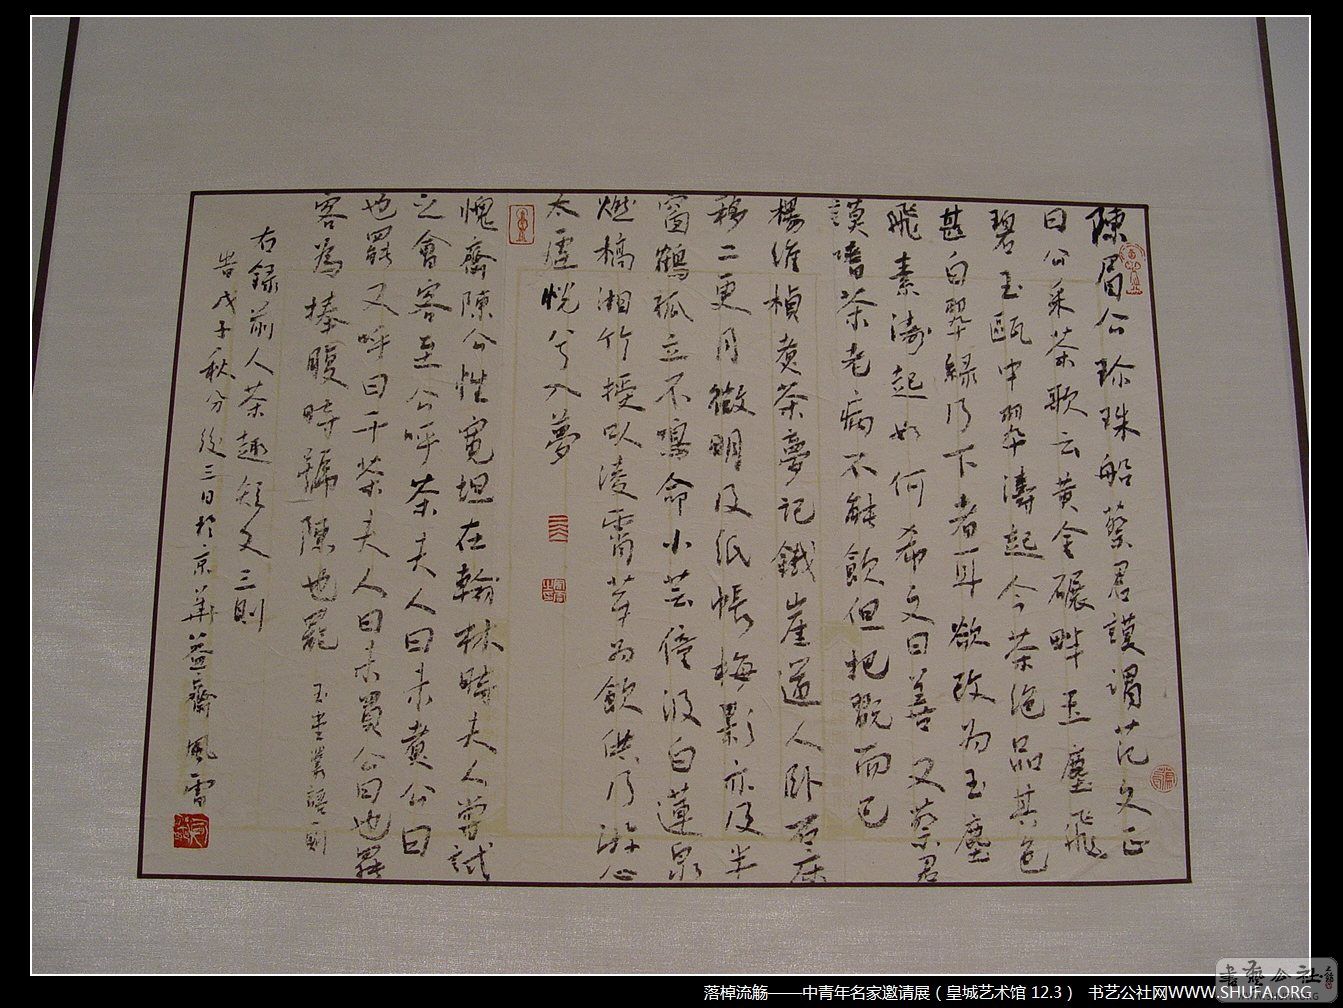 陳眉公珍珠船蔡君謨謂范文正
曰公采茶歌云黃金碾畔玉塵飛
碧玉甌中翠濤起今茶絕品其色
甚白翠綠乃下者耳欲改為玉塵
飛素濤起如何希文曰善又蔡君
謨嗜茶老病不能飲但把翫而已
楊維楨煮茶夢記鐵崖道人臥石床
移二更月微明及紙帳梅影亦及半
窗鶴孤立不鳴命小芸僮汲白蓮泉
燃槁湘竹授以凌霄芽為飲供乃游心
太虛恍兮入夢
愧齋陳公性寬坦在翰林時夫人嘗試
之會客至公呼茶夫人曰未煮公曰
也罷又呼曰干茶夫人曰未買公曰也罷
客為捧腹時號陳也罷 玉堂叢語一則
右錄前人茶趣短文三則
時戊子秋分後三日於京華益齋 風雷
落棹流觞——中青年名家邀请展（皇城艺术馆 12.3） 书艺公社网WWW.SHUFA.ORG